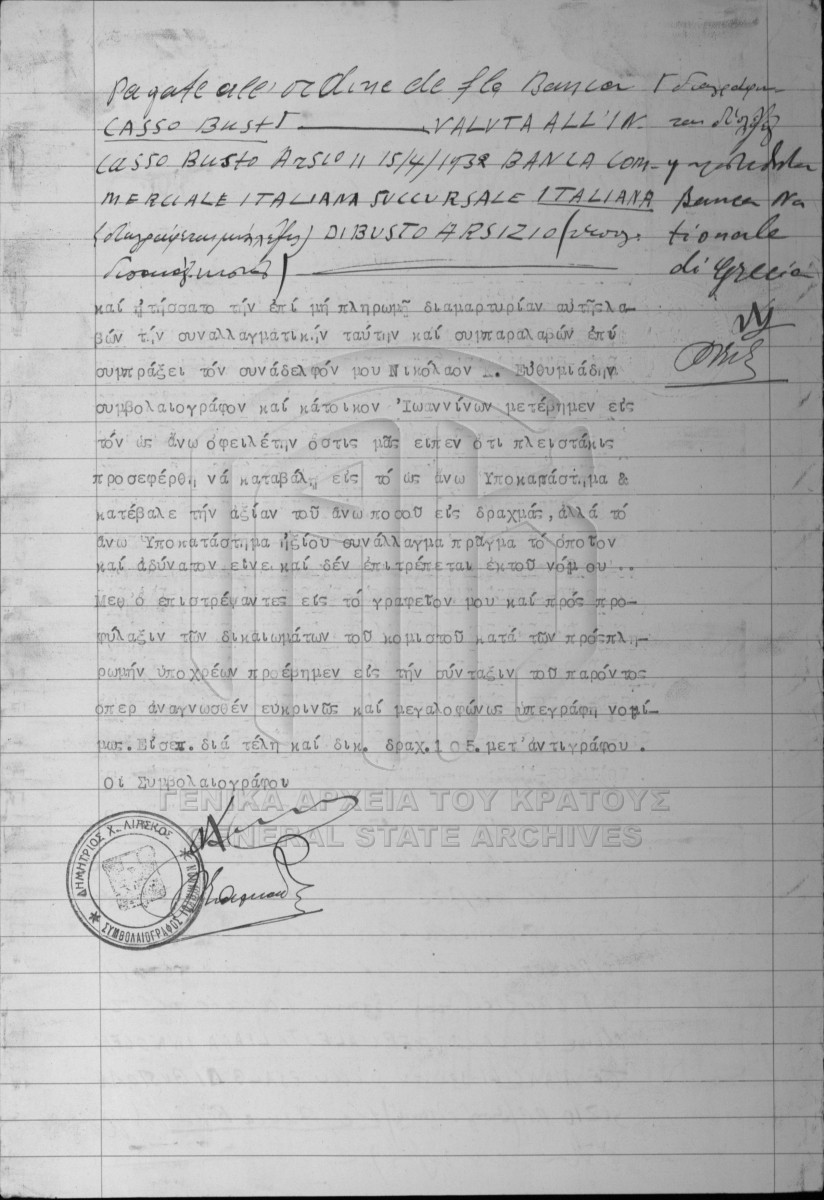 Pagate all'ordine de la Banca
CASSO BUSTO VALUTA ALL'IN.
CASSO BUSTO ARSIO 11 15/4/1932 BANCA COM-
MERCIALE ITALIANA SUCCURSALE ITALIANA
DI BUSTO ARSIZIO
Banca Na
tionale
di Grecia
καί ᾐτήσσατο τήν ἐπί μή πληρωμῇ διαμαρτυρίαν αὐτῆςλα-
βών τήν συναλλαγματικήν ταύτην καί συμπαραλαβών ἐπί
συμπράξει τόν συνάδελφόν μου Νικόλαον Εὐθυμιάδην
συμβολαιογράφον καί κάτοικον Ἰωαννίνων μετέβημεν εἰς
τόν ὡς ἄνω ὀφειλέτην ὅστις μᾶς εἶπεν ὅτι πλειστάκις
προσεφέρθη νά καταβάλῃ εἰς τό ὡς ἄνω Ὑποκατάστημα &
κατέβαλε τήν ἀξίαν τοῦ ἄνω ποσοῦ εἰς δραχμάς, ἀλλά τό
ἄνω Ὑποκατάστημα ἠξίου συνάλλαγμα πρᾶγμα τό ὁποῖον
καί ἀδύνατον εἶνε καί δέν ἐπιτρέπεται ἐκτοῦ νόμου..
Μεθ ὅ ἐπιστρέψαντες εἰς τό γραφεῖον μου καί πρός προ-
φύλαξιν τῶν δικαιωμάτων τοῦ κομιστοῦ κατά τῶν πρόςπλη-
ρωμήν ὑποχρέων προέβημεν εἰς τήν σύνταξιν τοῦ παρόντος
ὅπερ ἀναγνωσθέν εὐκρινῶς καί μεγαλοφώνως ὑπεγράφη νομί-
μως. Εἰσεπ. διά τέλη καί δικ. δραχ.105.μετ'ἀντιγράφου.
Οἱ Συμβολαιογράφοι
ΓΕΝΙΚΑ ΑΡΧΕΙΑ ΤΟΥ ΚΡΑΤΟΥΣ
GENERAL STATE ARCHIVES
ΔΗΜΗΤΡΙΟΣ Χ. ΛΙΑΣΚΟΣ
ΣΥΜΒΟΛΑΙΟΓΡΑΦΟΣ ΙΩΑΝΝΙΝΩΝ